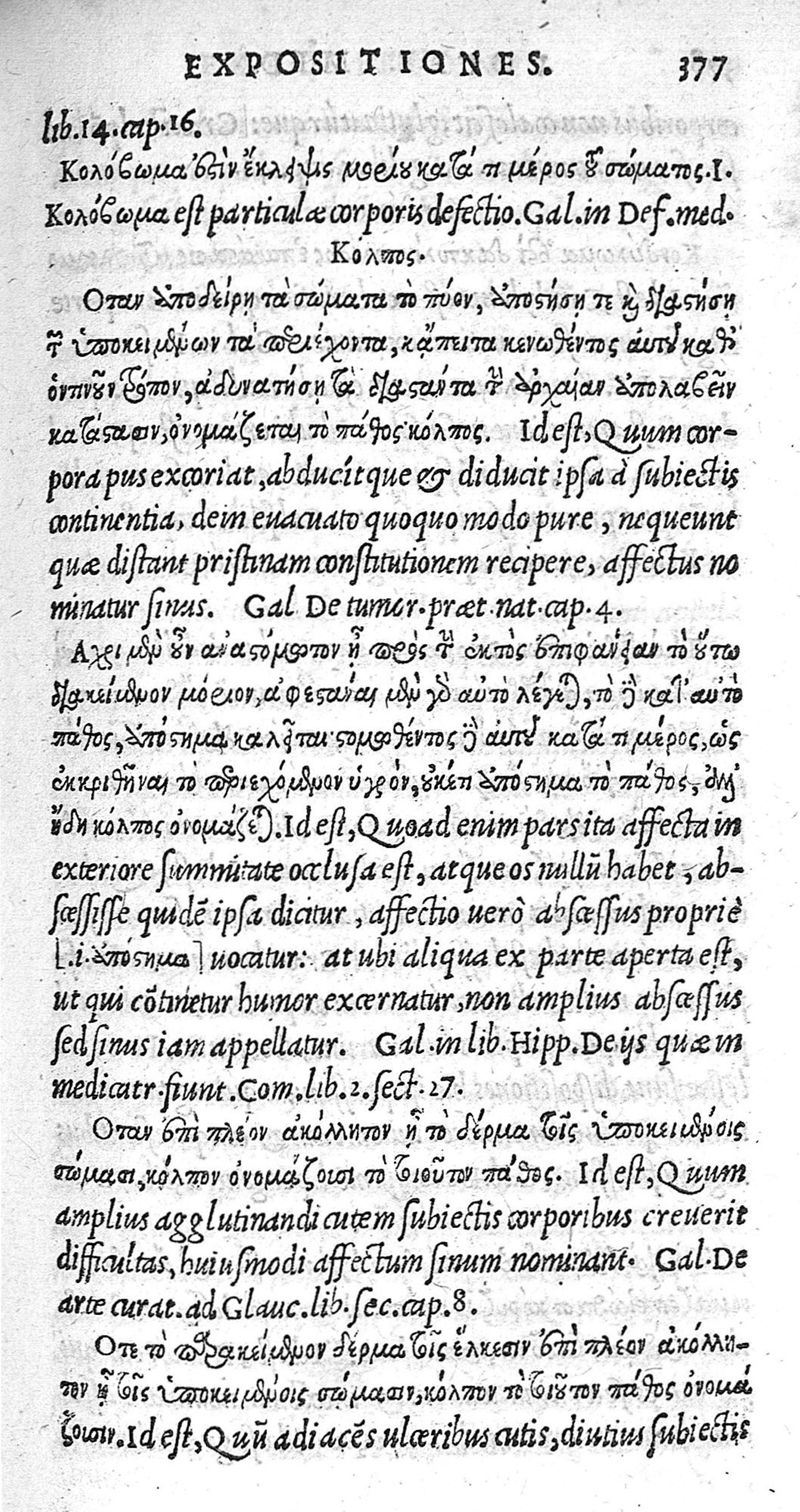 EXPOSITIONES. 377
lib.14.cap.16.
Κολόβωμα ἐστὶν ἔκλειψις μορίου κατά τι μέρος τοῦ σώματος. I.
Κολόβωμα est particulæ corporis defectio. Gal. in Def. med.
Κόλπος.
Οταν ἀποδείρῃ τὰ σώματα τὸ πύον, ἀποστήσῃ τε καὶ διαστήσῃ
τῶν ὑποκειμένων τὰ περιέχοντα, κἄπειτα κενωθέντος αὐτοῦ καθ'
ὁντινοῦν τρόπον, ἀδυνατήσῃ τὰ διαστάντα τὴν ἀρχαίαν ἀπολαβεῖν
κατάστασιν, ὀνομάζεται τὸ πάθος κόλπος. Id est, Quum cor-
pora pus excoriat, abducítque & diducit ipsa à subiectis
continentia, dein euacuato quoquo modo pure, nequeunt
quæ distant pristinam constitutionem recipere, affectus no
minatur sinus. Gal De tumor. præt. nat. cap. 4.
Αχρι μὲν οὖν ἀναστόμωτον ᾖ πρὸς τὴν ἐκτὸς ἐπιφάνειαν τὸ οὕτω
διακείμενον μόριον, ἀφεστάναι μὲν γὰρ αὐτὸ λέγεται, τὸ δὲ κατ' αὐτὸ
πάθος, ἀπόστημα καλεῖται· στομωθέντος δὲ αὐτοῦ κατά τι μέρος, ὡς
ἐκκριθῆναι τὸ περιεχόμενον ὑγρὸν, οὐκέτι ἀπόστημα τὸ πάθος, ἀλλ'
ἤδη κόλπος ὀνομάζεται. Id est, Quoad enim pars ita affecta in
exteriore summitate occlusa est, atque os nullũ habet, ab-
scessisse quidẽ ipsa dicitur, affectio uerò abscessus propriè
[.i. ἀπόστημα] uocatur: at ubi aliqua ex parte aperta est,
ut qui cõtinetur humor excernatur, non amplius abscessus
sed sinus iam appellatur. Gal. in lib. Hipp. De ijs quæ in
medicatr. fiunt. Com. lib. 2. sect. 27.
Οταν ἐπὶ πλέον ἀκόλλητον ᾖ τὸ δέρμα τοῖς ὑποκειμένοις
σώμασι, κόλπον ὀνομάζουσι τὸ τοιοῦτον πάθος. Id est, Quum
amplius agglutinandi cutem subiectis corporibus creuerit
difficultas, huiusmodi affectum sinum nominant. Gal. De
arte curat. ad Glauc. lib. sec. cap. 8.
Οτε τὸ παρακείμενον δέρμα τοῖς ἕλκεσιν ἐπὶ πλέον ἀκόλλη-
τον ᾖ τοῖς ὑποκειμένοις σώμασιν, κόλπον τὸ τοιοῦτον πάθος ὀνομά
ζουσιν. Id est, Quũ adiacẽs ulceribus cutis, diutius subiectis